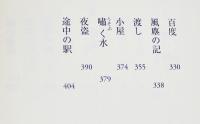 百度 330
風塵の記 338
渡し 355
小屋 374
嘯く水 379
うそぶ
夜盗 390
途中の駅 404